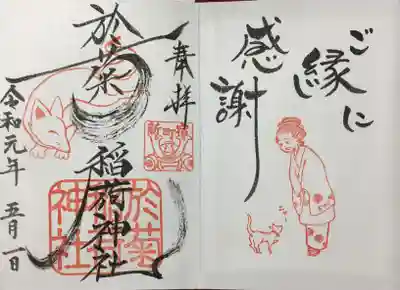 ご縁に
感謝
奉拝
於菊稲荷神社
令和元年 五月一日
於菊
稲荷
神社